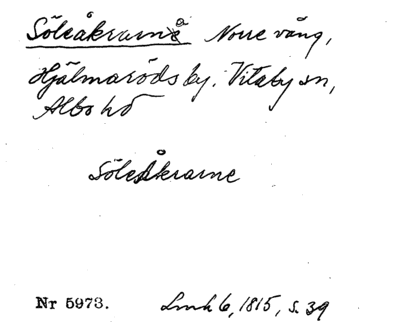 Söleåkrarna Norre vång,
Hjälmaröds by. Vitaby sn,
Albo hd
SöleÅkrarne
Nr 5973. Lmh 6, 1815, s. 39